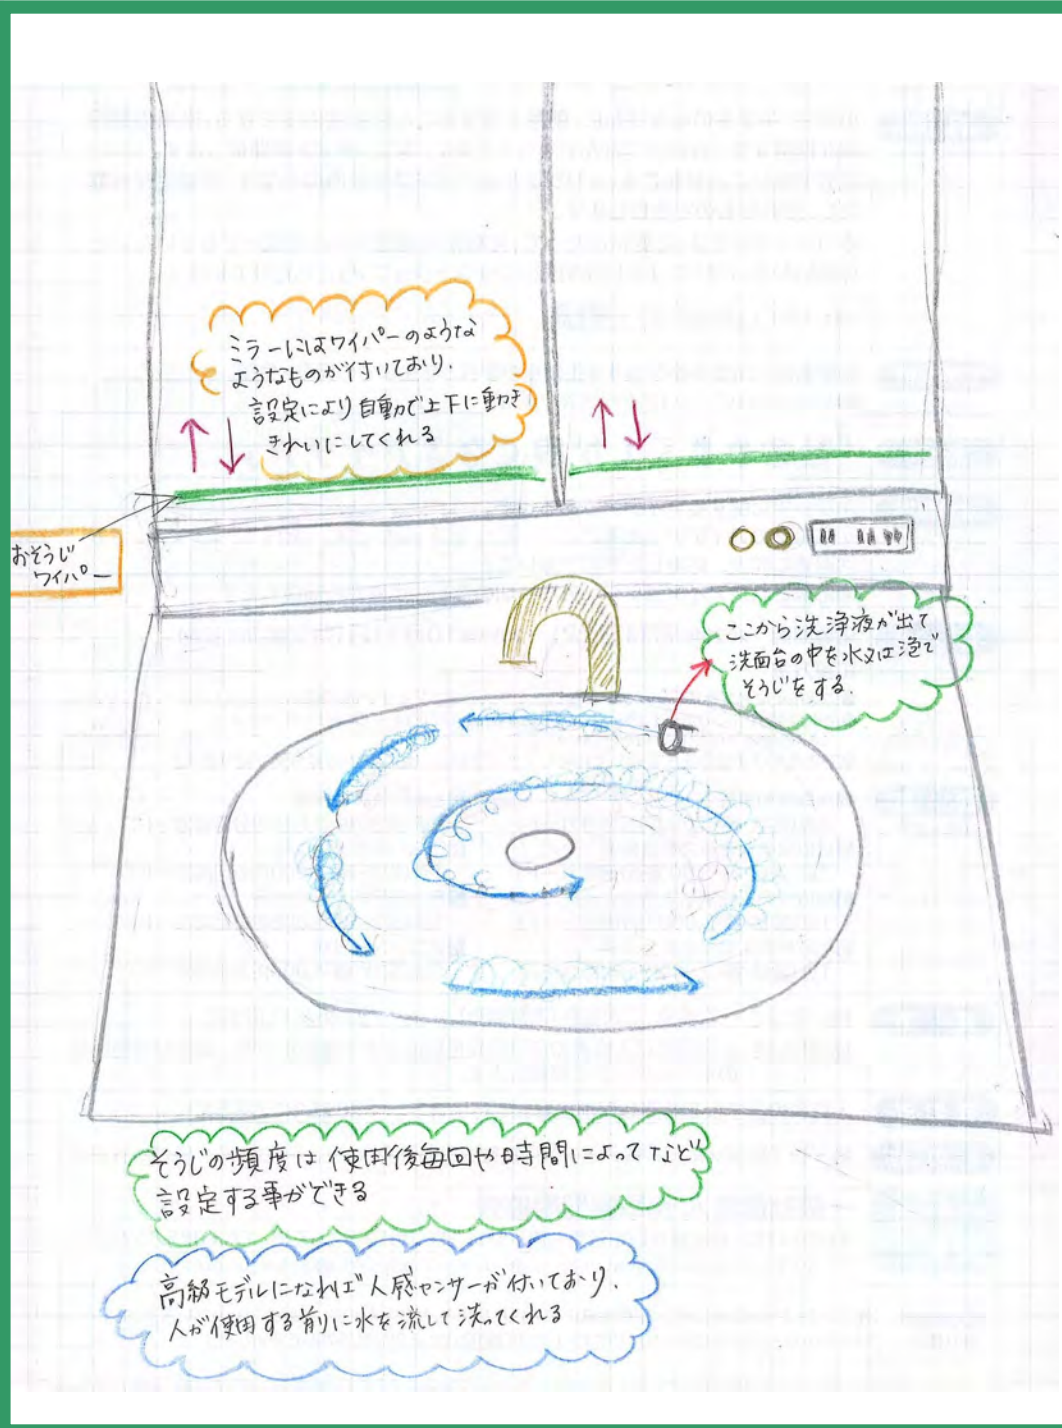 ミラーにはワイパーのような
ようなものが付いており、
設定により自動で上下に動き
きれいにしてくれる
おそうじ
ワイパー
ここから洗浄液が出て
洗面台の中を水又は泡で
そうじをする.
そうじの頻度は使用後毎回や時間によってなど
設定する事ができる
高級モデルになれば人感センサーが付いており、
人が使用する前に水を流して洗ってくれる